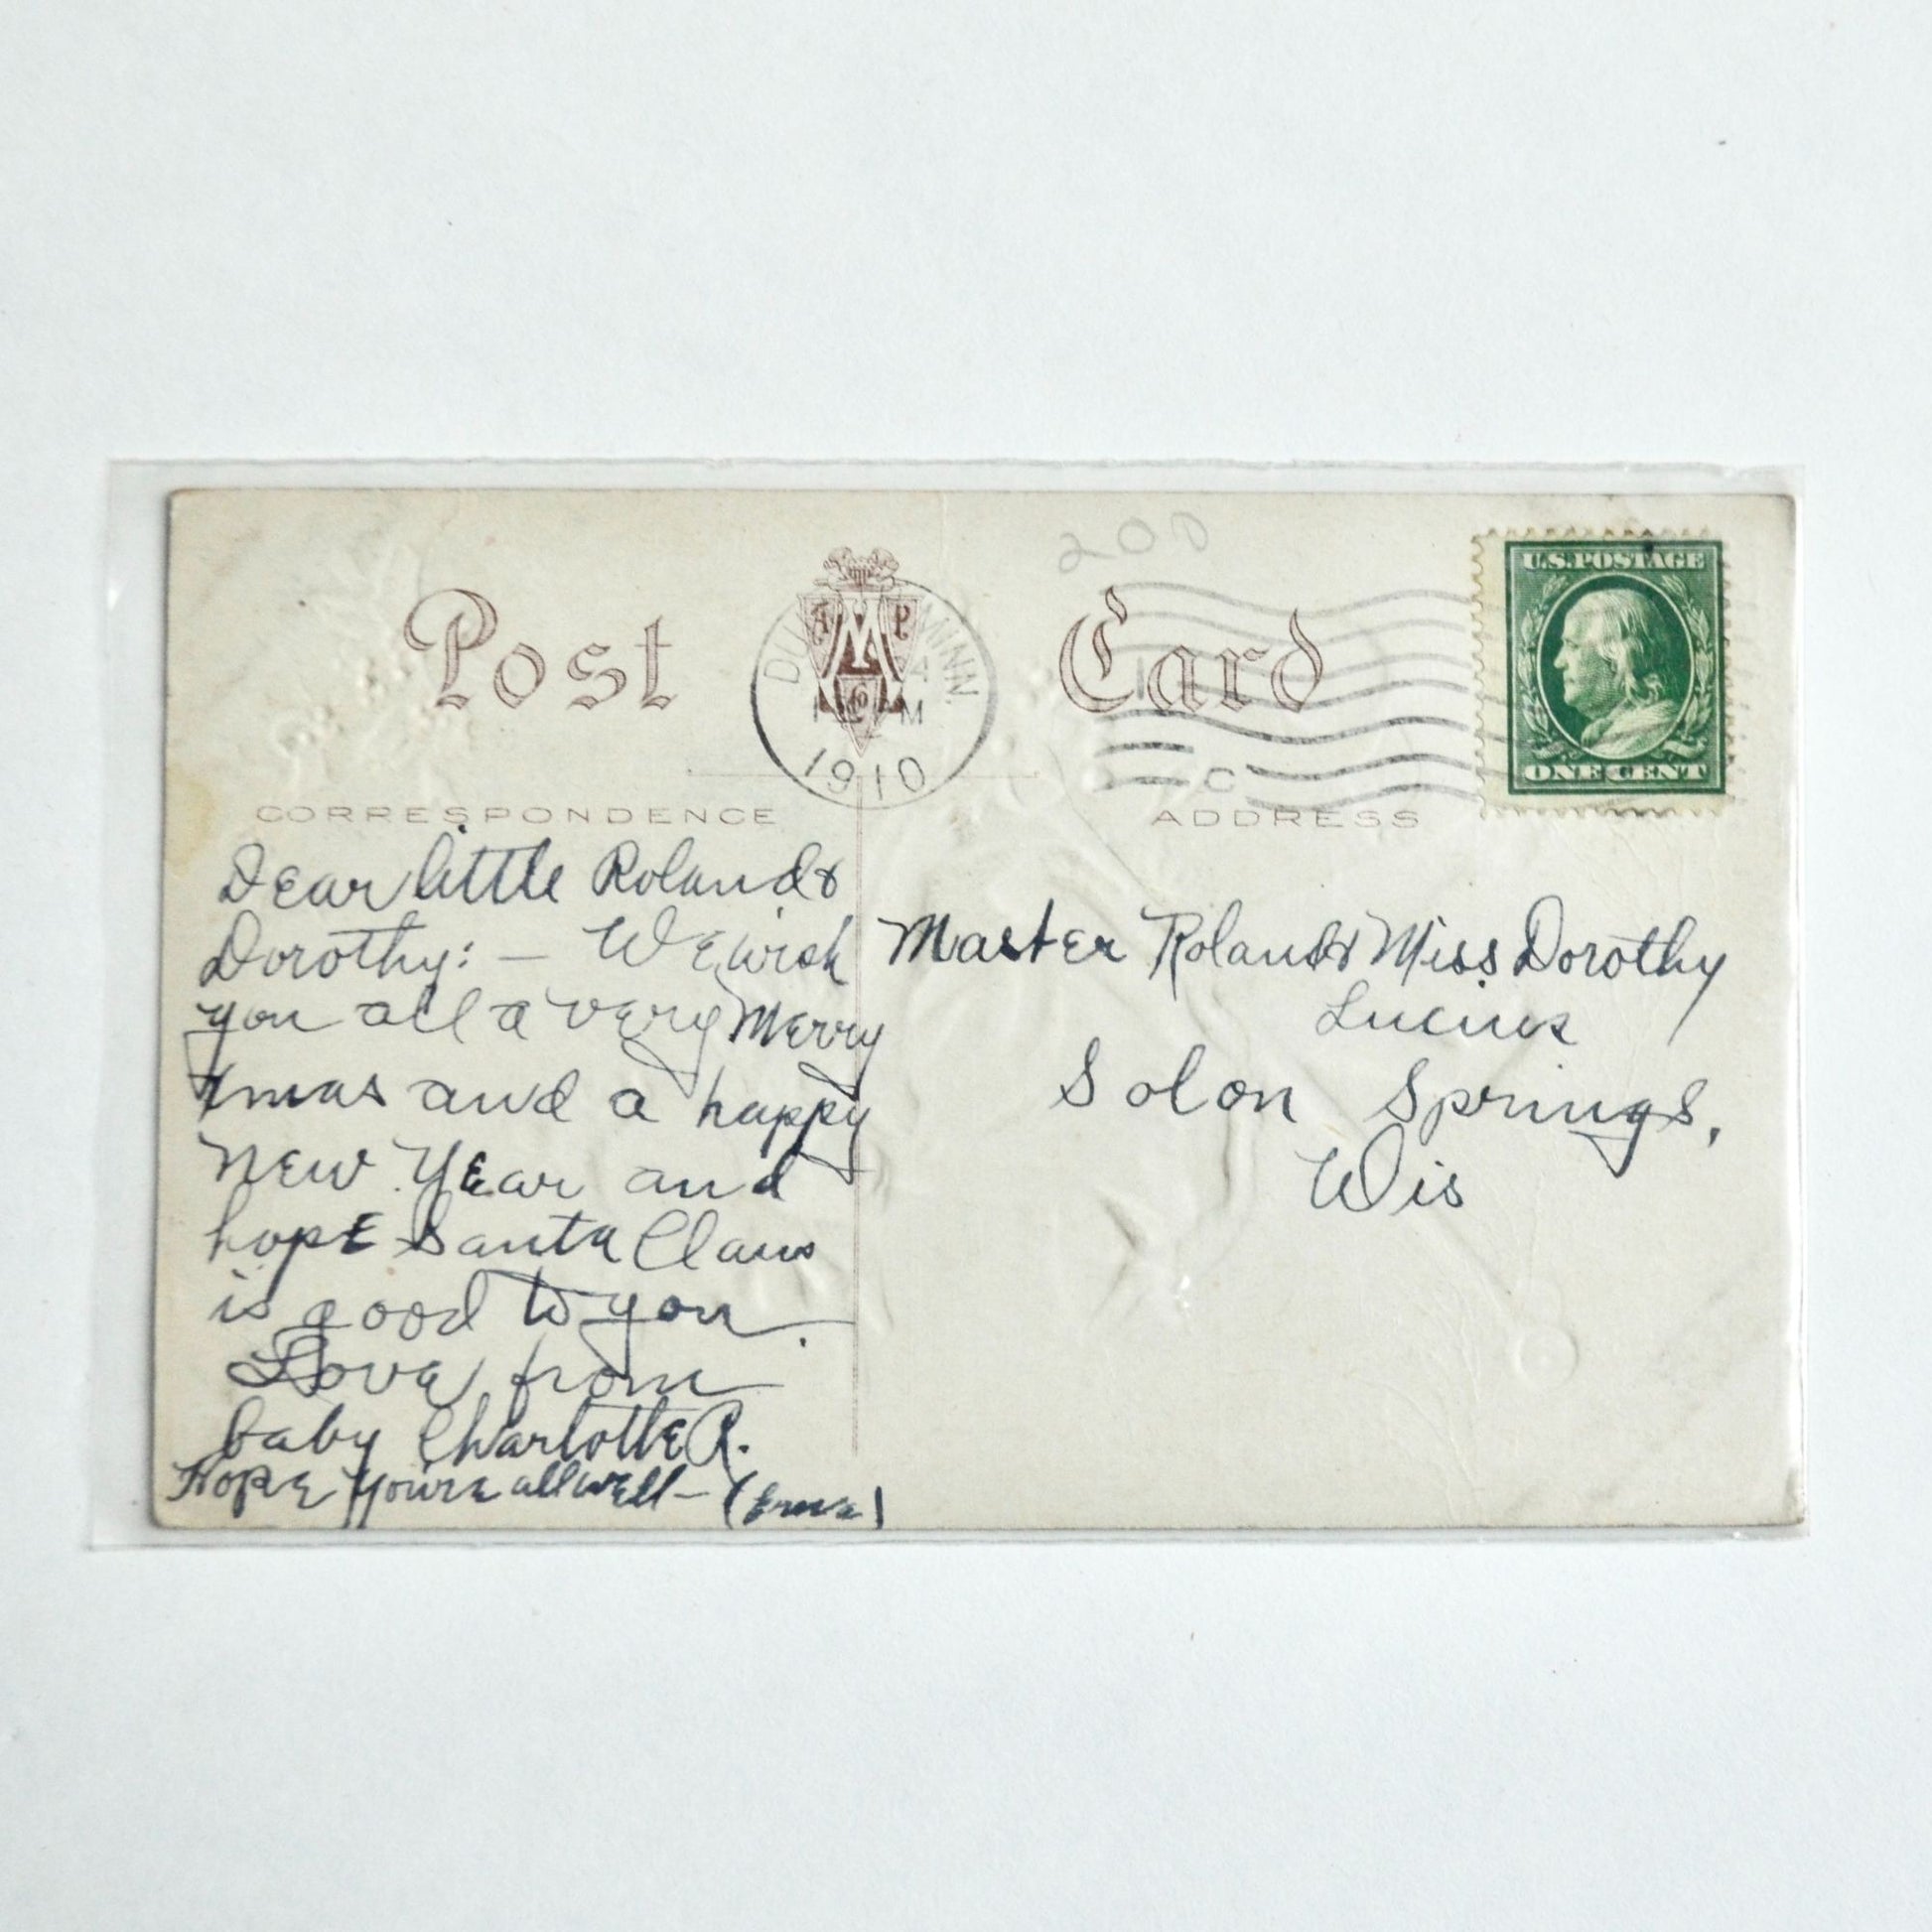 200
Post Card
U.S. POSTAGE
ONE CENT
A M P
Co
MINN.
M
1910
C
CORRESPONDENCE
Dear little Roland &
Dorothy: — We wish
you all a very Merry
Xmas and a happy
New Year and
hope Santa Claus
is good to you.
Love from
baby Charlotte R.
Hope you're all well —
ADDRESS
Master Roland & Miss Dorothy
Lucius
Solon Springs,
Wis